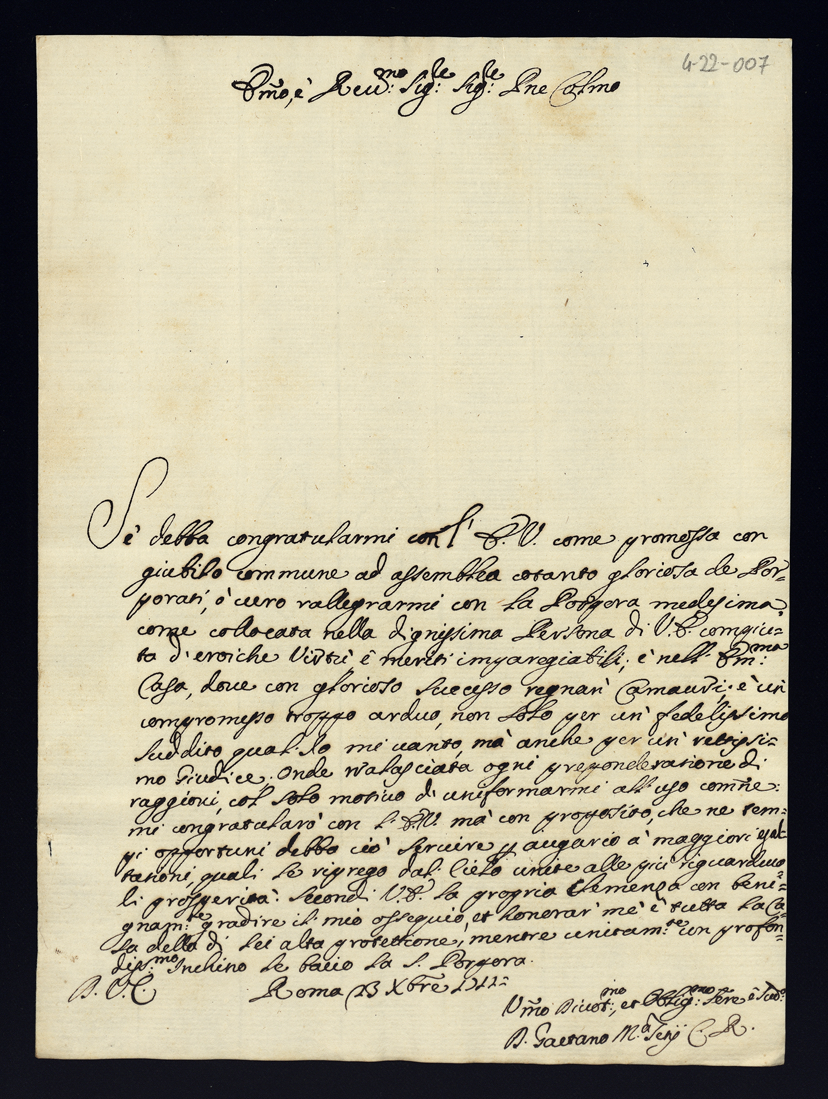 4-22-007
Emo, è Reu.mo Sig.re Sig.re Pne Colmo
Sè debba congratularmi con l' E. V. come promossa con
giubilo commune ad assemblea cotanto gloriosa de Por=
porati, ò uero rallegrarmi con la Porpora medesima,
come collocata nella dignissima Persona di V. E. congiu=
ta d'eroiche Virtù è meriti impareggiabili; è nell' Em.ma
Casa, doue con glorioso successo regnan' Camauri; è un'
compromesso troppo arduo, non solo per un' fedelissimo
suddito qual'Io mi uanto, mà anche per un' rettissi=
mo Giudice. Onde tralasciata ogni preponderatione di
raggioni, col solo motiuo di uniformarmi all'uso comne:
mi congratularò con l' E. V. mà con proposito, che ne tem=
pi opportuni debba ciò seruire p augurio à maggiori esal
tationi, quali le riprego dal Cielo unite alle più riguardeuo=
li prosperità. Secondi V. E. la propria Clemenza con beni=
gnam.te gradire il mio ossequio, et honorar' mè è tutta la Ca=
sa della di lei alta protettione, mentre unitam.te con profon=
diss.mo Inchino le bacio la S. Porpora.
D. V. E. Roma 13 Xbre 1711
Vmo Diuot.mo, et Obblig.mo Sere è Sud.o
D. Gaetano M.a C. R.